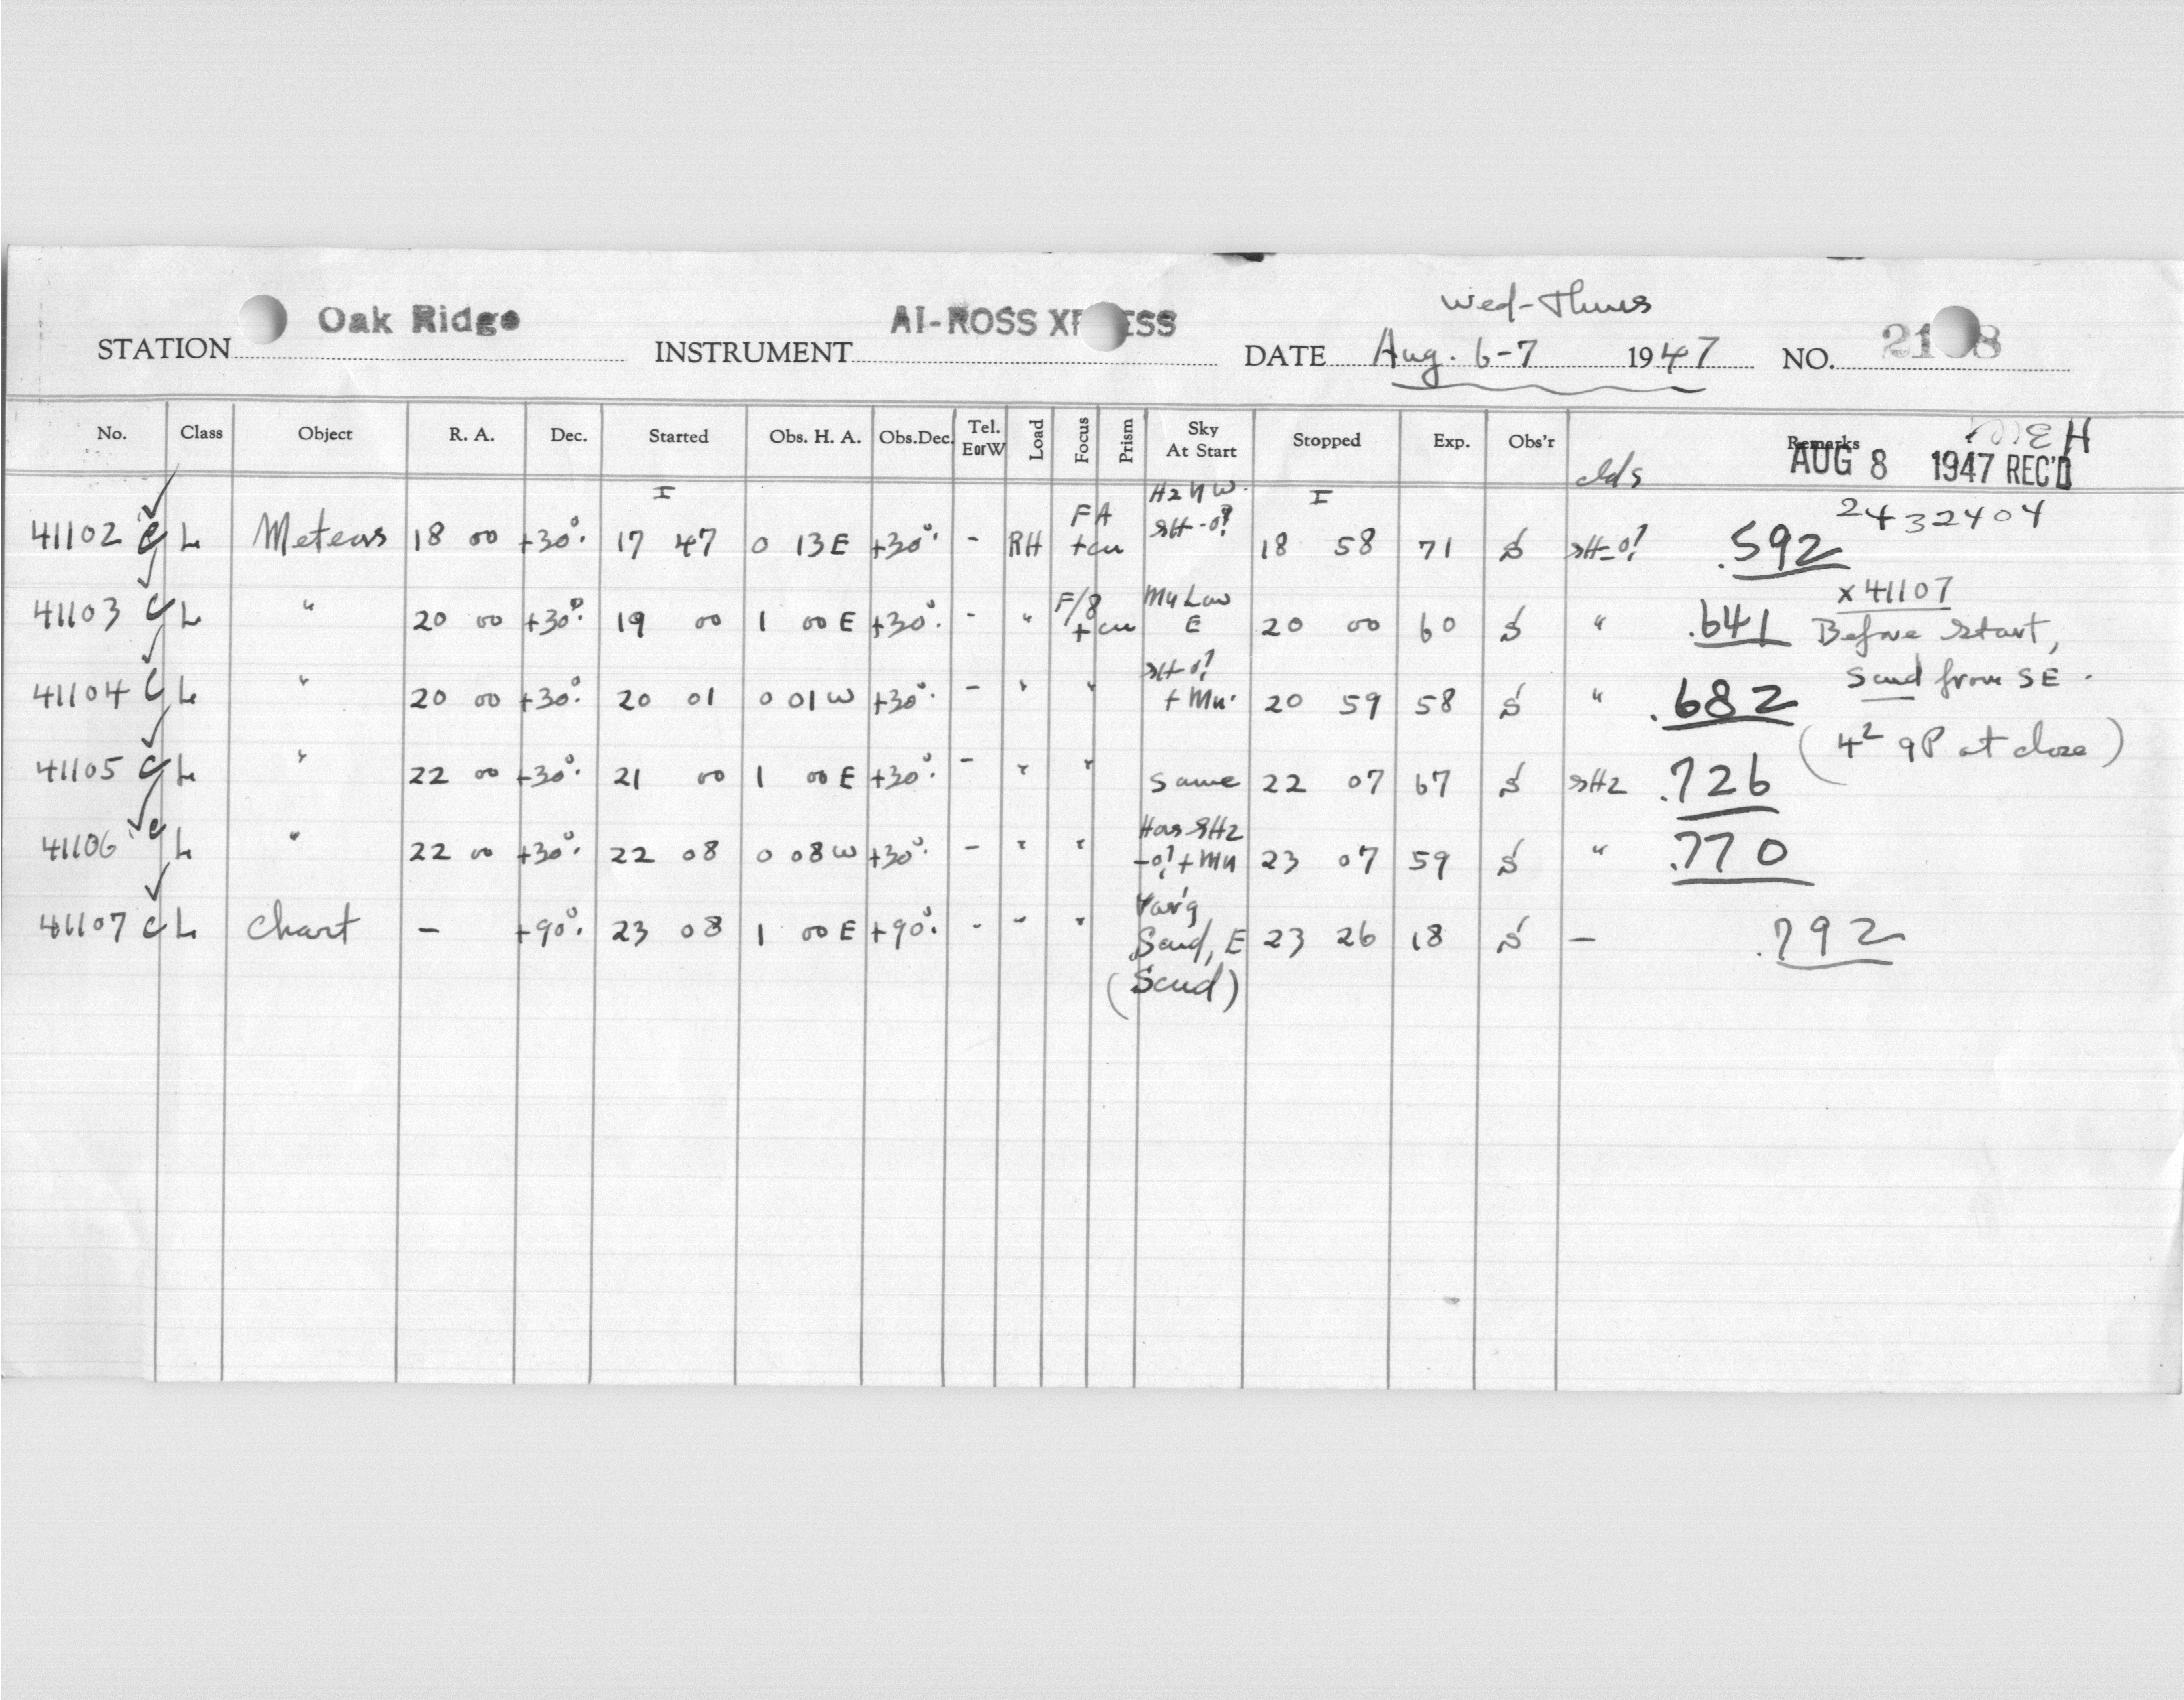 Wed-Thurs
STATION Oak Ridge INSTRUMENT AI-ROSS XP ESS DATE Aug. 6-7 1947 NO. 21 8
No. Class Object R. A. Dec. Started Obs. H. A. Obs. Dec. Tel. E or W Load Focus Prism Sky At Start Stopped Exp. Obs'r Remarks
clds AUG 8 1947 REC'D
2432404
41102 C L Meteors 18 00 +30°. 17 47 0 13 E +30°. - RH FA +cu 18 58 71 .592
x 41107
41103 C L " 20 00 +30°. 19 00 1 00 E +30°. - " F/8 +cu Mu Low E 20 00 60 " .641 Before start,
Scud from SE.
41104 C L " 20 00 +30°. 20 01 0 01 W +30°. - " " + Mu. 20 59 58 " .682
(4² qP at close)
41105 C L " 22 00 +30°. 21 00 1 00 E +30°. - " " same 22 07 67 sHz .726
41106 C L " 22 00 +30°. 22 08 0 08 W +30°. - " " Has sHz -o? + Mu 23 07 59 " .770
41107 C L Chart - +90°. 23 08 1 00 E +90°. - " " Var'g Scud, E 23 26 18 - .792
(Scud)